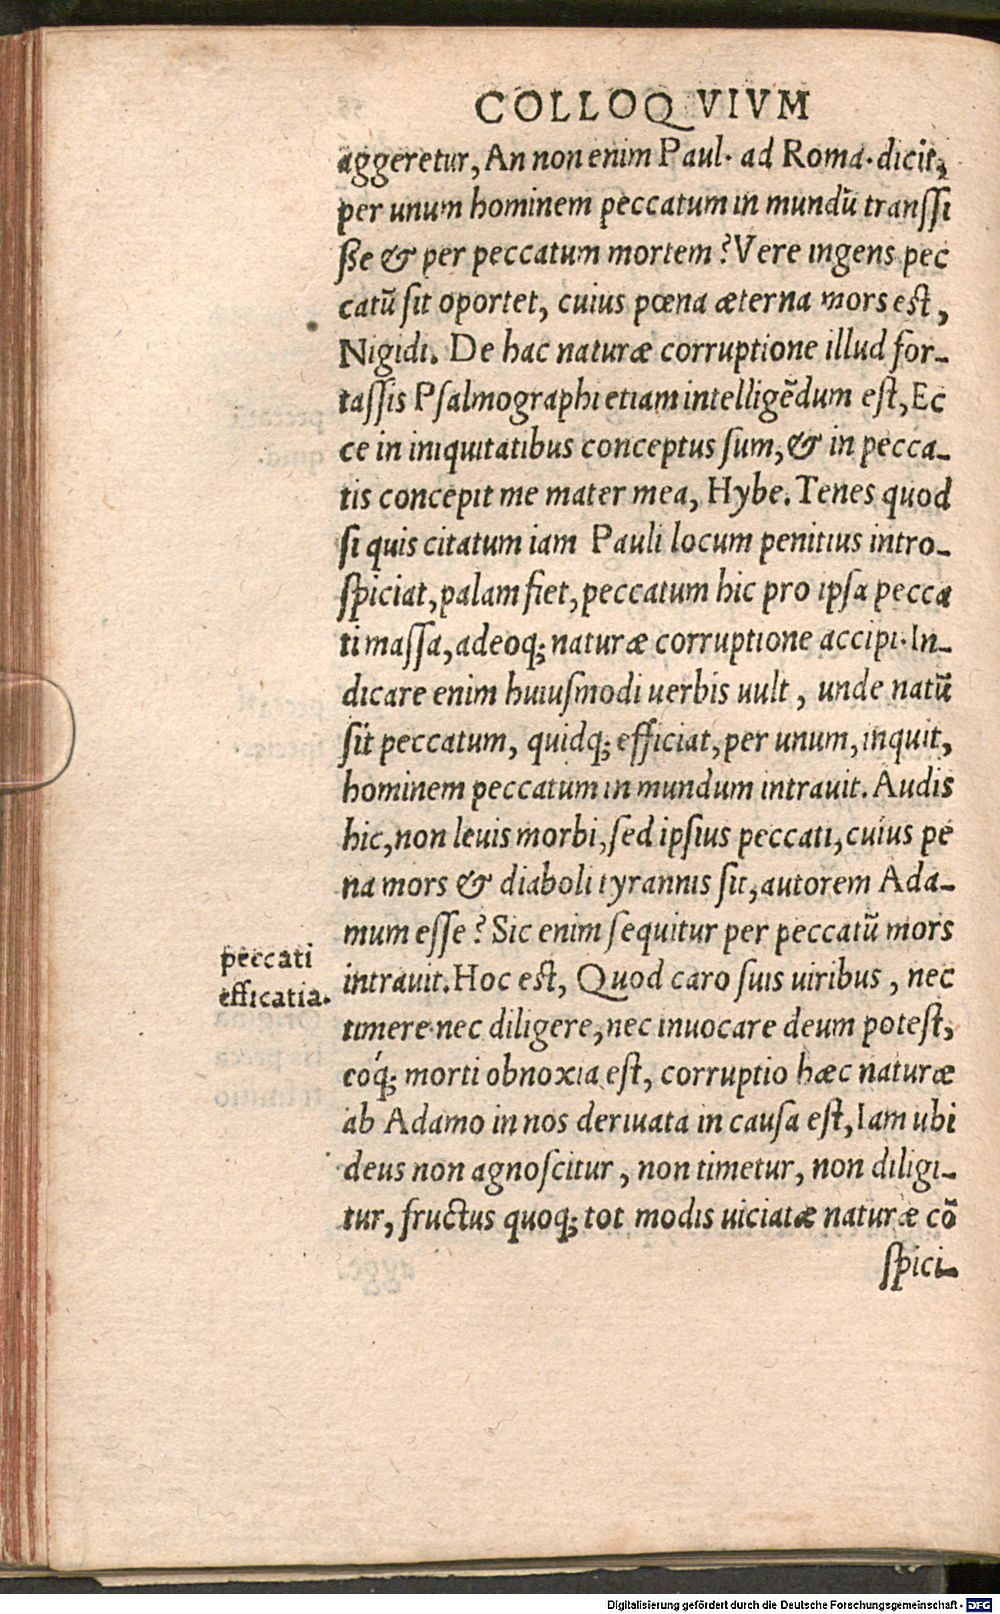 COLLOQVIVM
aggeretur, An non enim Paul· ad Roma·dicit,
per unum hominem peccatum in mundū transſi
ſſe & per peccatum mortem? Vere ingens pec
catū ſit oportet, cuius pœna æterna mors eſt,
Nigidi. De hac naturæ corruptione illud for-
taſſis Pſalmographi etiam intelligēdum eſt, Ec
ce in iniquitatibus conceptus ſum, & in pecca-
tis concepit me mater mea, Hybe. Tenes quod
ſi quis citatum iam Pauli locum penitius intro-
ſpiciat, palam fiet, peccatum hic pro ipſa pecca
ti maſſa, adeoq; naturæ corruptione accipi· In-
dicare enim huiuſmodi uerbis uult, unde natū
ſit peccatum, quidq; efficiat, per unum, inquit,
hominem peccatum in mundum intrauit. Audis
hic, non leuis morbi, ſed ipſius peccati, cuius pe
na mors & diaboli tyrannis ſit, autorem Ada-
mum eſſe? Sic enim ſequitur per peccatū mors
peccati
efficatia.
intrauit. Hoc eſt, Quod caro ſuis uiribus, nec
timere nec diligere, nec inuocare deum poteſt,
eóq; morti obnoxia eſt, corruptio hæc naturæ
ab Adamo in nos deriuata in cauſa eſt, Iam ubi
deus non agnoſcitur, non timetur, non diligi-
tur, fructus quoq; tot modis uiciatæ naturæ cō
ſpici-
Digitalisierung gefördert durch die Deutsche Forschungsgemeinschaft - DFG